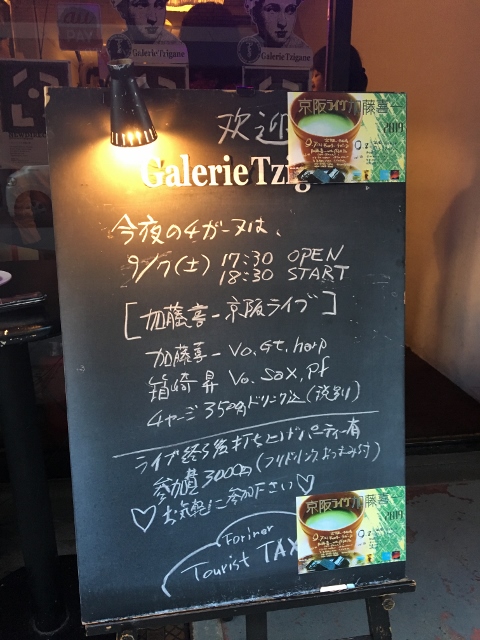 Galerie Tzigane
Galerie Tzigane
欢迎
京阪ライヴ加藤喜一
2019
Galerie Tzig
今夜のチガーヌは、
9/7(土) 17:30 OPEN
18:30 START
[加藤喜一京阪ライブ]
加藤喜一 Vo, Gt, harp
箱崎 昇 Vo, Sax, Pf
チャージ 3500円ドリンク込(被り)
ライブ終了後打ち上げパーティー有
参加費 3000円(フリードリンクおつまみ付)
♡お気軽に参加下さい♡
京阪ライヴ加藤喜一
2019
Foriner
Tourist TAX